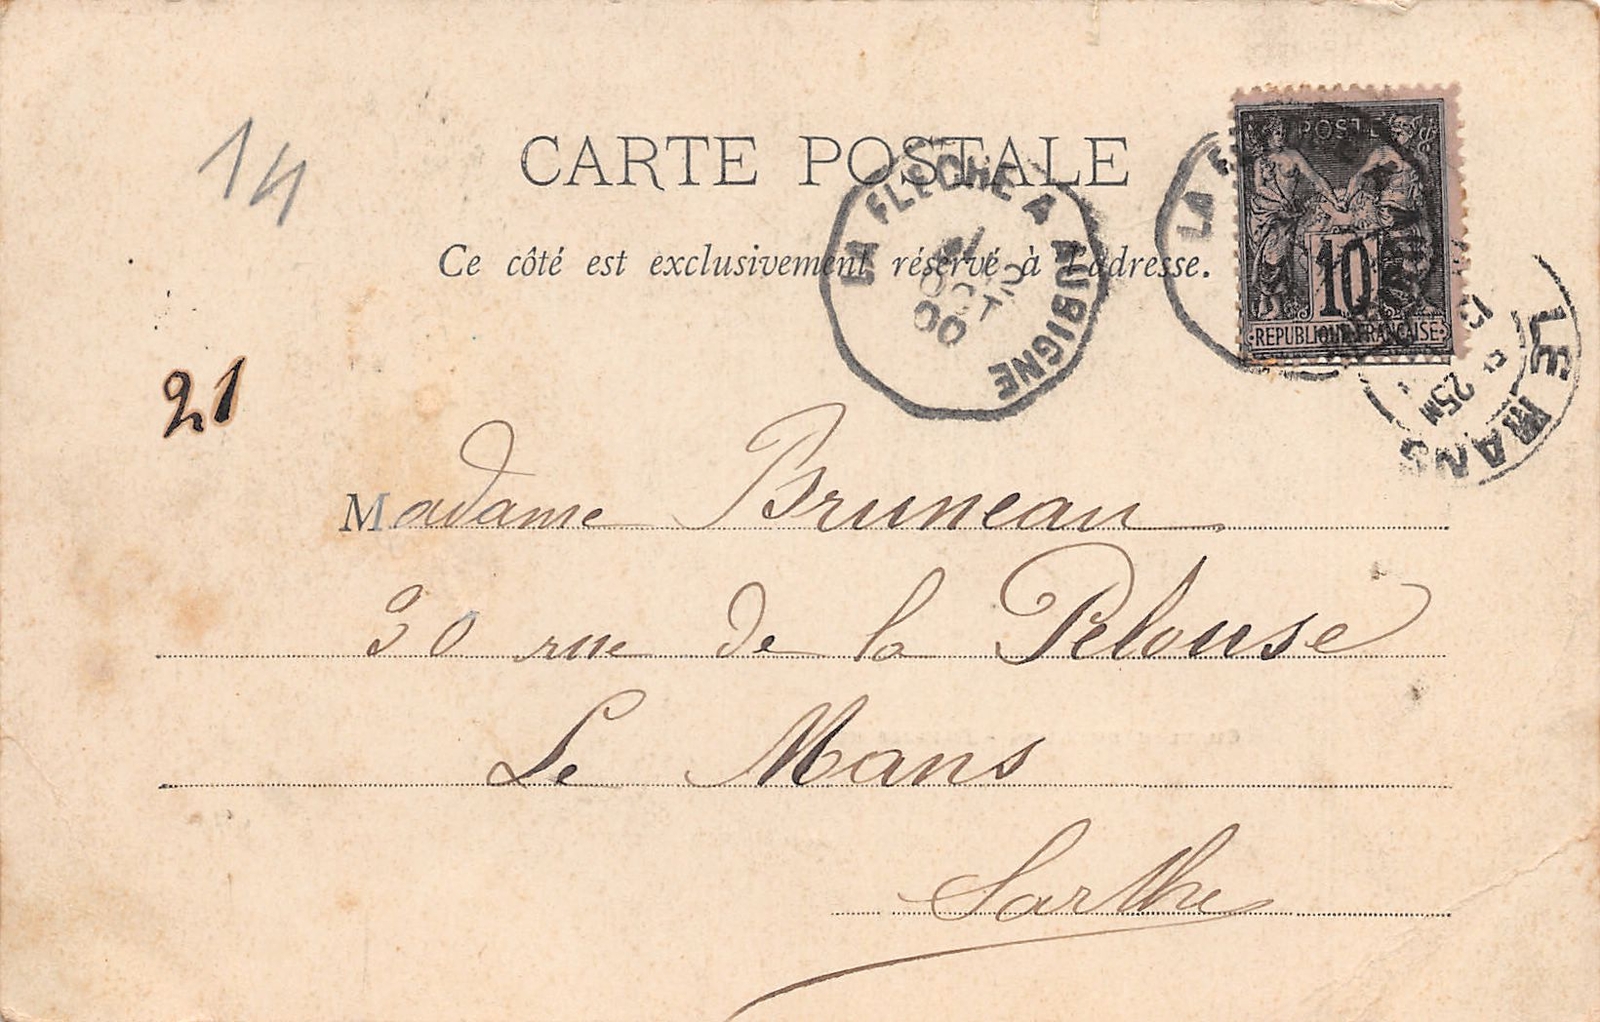 14
CARTE POSTALE
Ce côté est exclusivement réservé à l'adresse.
LA FLÈCHE A AUBIGNE
12
OCT
00
POSTE
10
REPUBLIQUE FRANCAISE
LA
LE MANS
13
25M
21
Madame Bruneau
30 rue de la Pelouse
Le Mans
Sarthe